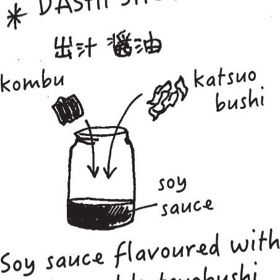 * DASHI
出汁 醤油
kombu
katsuo
bushi
soy
sauce
Soy sauce flavoured with